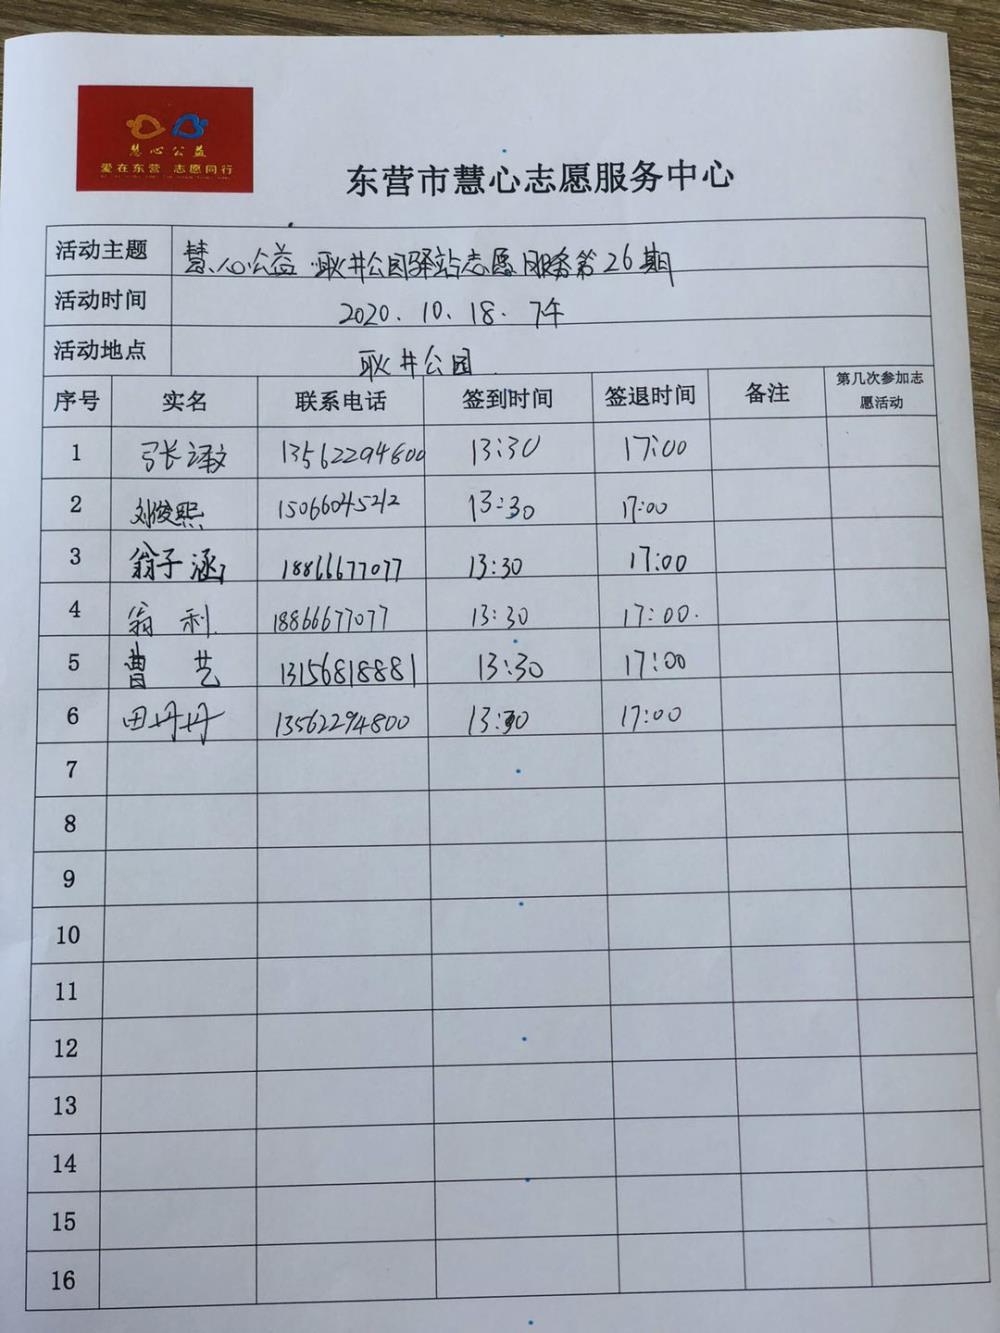 慧心公益
爱在东营 志愿同行
东营市慧心志愿服务中心
活动主题 慧心公益 耿井公园驿站志愿服务第26期
活动时间 2020.10.18.下午
活动地点 耿井公园
序号 实名 联系电话 签到时间 签退时间 备注 第几次参加志愿活动
1 张译文 13562294800 13:30 17:00
2 刘俊熙 15066045212 13:30 17:00
3 翁子涵 18866677077 13:30 17:00
4 翁利 18866677077 13:30 17:00.
5 曹艺 13156818881 13:30 17:00
6 田丹丹 13562294800 13:30 17:00
7
8
9
10
11
12
13
14
15
16